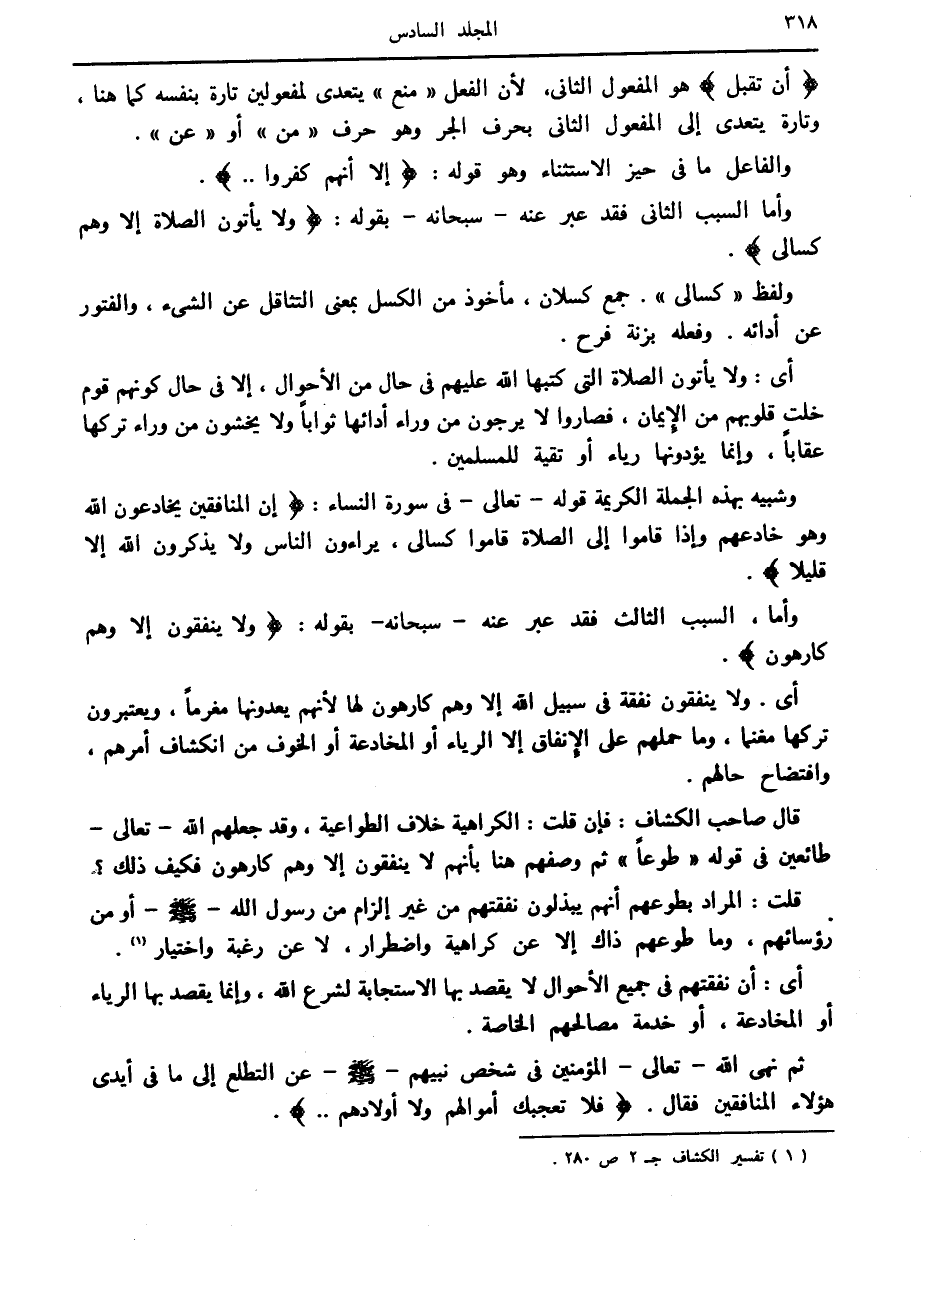 ٣١٨
المجلد السادس
﴿ أن تقبل ﴾ هو المفعول الثانى، لأن الفعل « منع » يتعدى لمفعولين تارة بنفسه كما هنا ،
وتارة يتعدى إلى المفعول الثانى بحرف الجر وهو حرف « من » أو « عن » .
والفاعل ما فى حيز الاستثناء وهو قوله : ﴿ إلا أنهم كفروا .. ﴾ .
وأما السبب الثانى فقد عبر عنه – سبحانه – بقوله : ﴿ ولا يأتون الصلاة إلا وهم
كسالى ﴾ .
ولفظ « كسالى » . جمع كسلان ، مأخوذ من الكسل بمعنى التثاقل عن الشىء ، والفتور
عن أدائه . وفعله بزنة فرح .
أى : ولا يأتون الصلاة التى كتبها الله عليهم فى حال من الأحوال ، إلا فى حال كونهم قوم
خلت قلوبهم من الإيمان ، فصاروا لا يرجون من وراء أدائها ثواباً ولا يخشون من وراء تركها
عقاباً ، وإنما يؤدونها رياء أو تقية للمسلمين .
وشبيه بهذه الجملة الكريمة قوله – تعالى – فى سورة النساء : ﴿ إن المنافقين يخادعون الله
وهو خادعهم وإذا قاموا إلى الصلاة قاموا كسالى ، يراءون الناس ولا يذكرون الله إلا
قليلا ﴾ .
وأما ، السبب الثالث فقد عبر عنه – سبحانه– بقوله : ﴿ ولا ينفقون إلا وهم
كارهون ﴾ .
أى . ولا ينفقون نفقة فى سبيل الله إلا وهم كارهون لها لأنهم يعدونها مغرماً ، ويعتبرون
تركها مغنما ، وما حملهم على الإنفاق إلا الرياء أو المخادعة أو الخوف من انكشاف أمرهم ،
وافتضاح حالهم .
قال صاحب الكشاف : فإن قلت : الكراهية خلاف الطواعية ، وقد جعلهم الله – تعالى –
طائعين فى قوله « طوعاً » ثم وصفهم هنا بأنهم لا ينفقون إلا وهم كارهون فكيف ذلك ؟
قلت : المراد بطوعهم أنهم يبذلون نفقتهم من غير إلزام من رسول الله – ﷺ – أو من
رؤسائهم ، وما طوعهم ذاك إلا عن كراهية واضطرار ، لا عن رغبة واختيار (١) .
أى : أن نفقتهم فى جميع الأحوال لا يقصد بها الاستجابة لشرع الله ، وإنما يقصد بها الرياء
أو المخادعة ، أو خدمة مصالحهم الخاصة .
ثم نهى الله – تعالى – المؤمنين فى شخص نبيهم – ﷺ – عن التطلع إلى ما فى أيدى
هؤلاء المنافقين فقال . ﴿ فلا تعجبك أموالهم ولا أولادهم .. ﴾ .
( ١ ) تفسير الكشاف جـ ٢ ص ٢٨٠ .